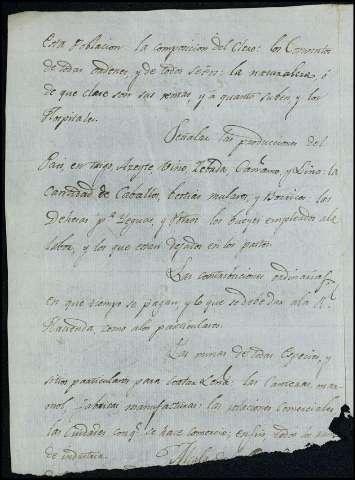 Esta Poblacion: la composicion del Clero: los Conventos
de todas ordenes, y de todos
de que clase son sus rentas, y á quanto suben, y los
Hospitales.
Señalar las producciones del
Pais, en trigo, Azeyte, Vino, Zevada, Cañamo, y Lino: la
Cantidad de Cavallos, bestias mulares, y Borricos: los
Dehesas p.ª Yeguas, y los bueyes empleados ala
labor, y los que estan dejados en los pastos.
Las contribuciones ordinarias,
en que tiempo se pagan, y lo que se debe dar ala R.l
Hacienda, como alos particulares.
Las minas de todas Especies, y
sitios particulares para cortar Leña: las Canteras, mar
mol, fabricas manufacturas: las relaciones Comerciales
las Ciudades conq.e se hace comercio; en fin, todos
de industria.